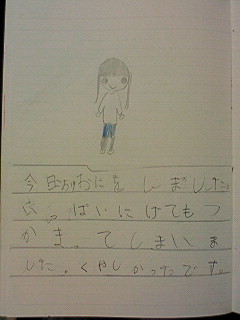 今日おにをしました。
っぱいにげてもつ
かまってしまいま
した。くやしかったです。